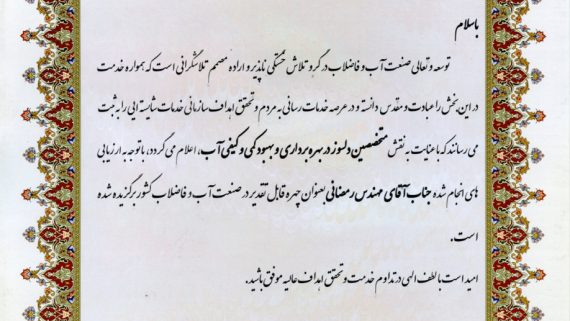 باسلام
توسعه و تعالی صنعت آب و فاضلاب در گرو تلاش خستگی ناپذیر و اراده مصمم تلاشگرانی است که همواره خدمت
در این بخش را عبادت و مقدس دانسته و در عرصه خدمات رسانی به مردم و تحقق اهداف سازمانی خدمات شایسته ایی را به ثبت
می رسانند که با عنایت به نقش متخصصین دلسوز در بهره برداری و بهبود کمی و کیفی آب، اعلام می گردد، با توجه به ارزیابی
های انجام شده جناب آقای مهندس رمضانی بعنوان چهره قابل تقدیر در صنعت آب و فاضلاب کشور برگزیده شده
است.
امید است با لطف الهی در تداوم خدمت و تحقق اهداف عالیه موفق باشید.